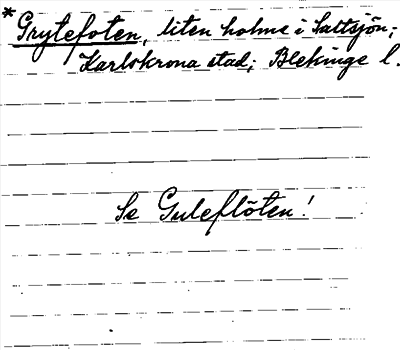 *Grytefoten, liten holme i Saltsjön;
Karlskrona stad; Blekinge l.
Se Guleflöten!